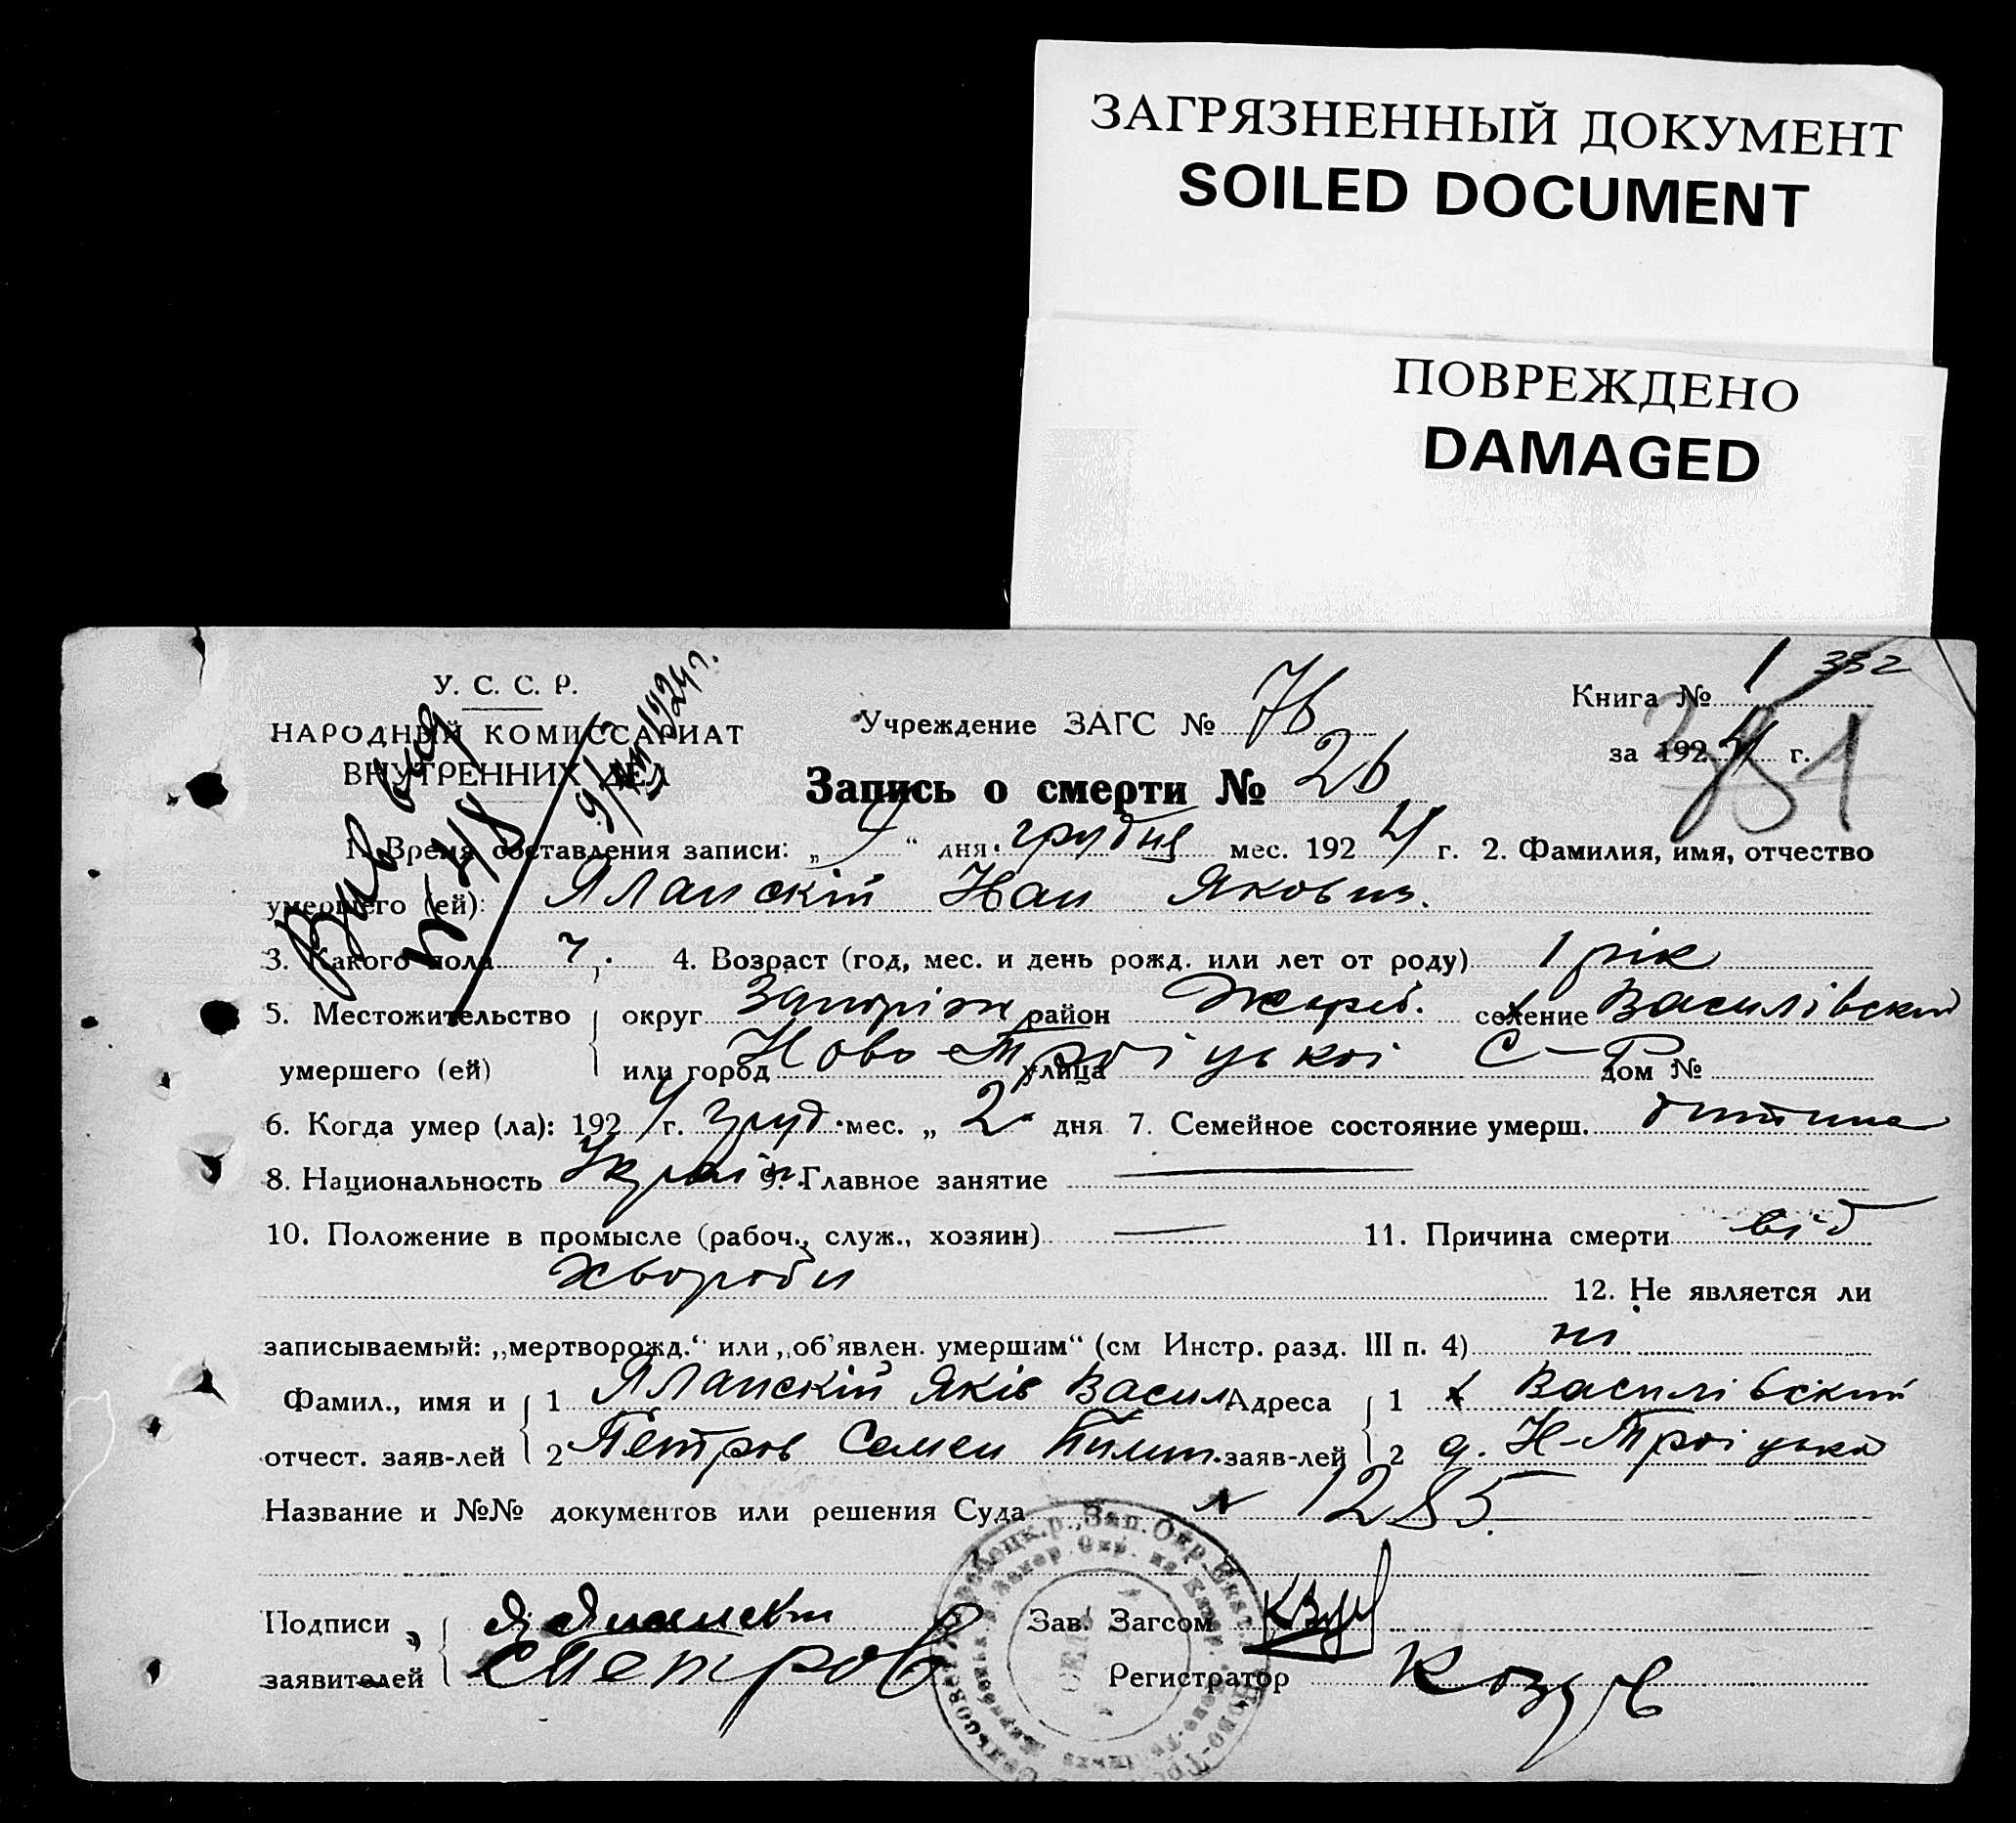 ЗАГРЯЗНЕННЫЙ ДОКУМЕНТ
SOILED DOCUMENT
ПОВРЕЖДЕНО
DAMAGED
У. С. С. Р.
НАРОДНЫЙ КОМИССАРИАТ
ВНУТРЕННИХ ДЕЛ
Учреждение ЗАГС №
Книга № 1 332
за 1924 г. 
Запись о смерти № 26
1. Время составления записи: „ “ дня грудня мес. 1924 г. 2. Фамилия, имя, отчество
умершего (ей): Яланскій Иван Якович.
3. Какого пола ч. 4. Возраст (год, мес. и день рожд. или лет от роду) 1 рік
5. Местожительство округ Запоріж район Жереб. селение Василівский
умершего (ей) или город Ново-Троіцькоі улица С-Р дом №
6. Когда умер (ла): 1924 г. груд. мес. „ 2 дня 7. Семейное состояние умерш. дитина
8. Национальность Украін. 9. Главное занятие —
10. Положение в промысле (рабоч., служ., хозяин) — 11. Причина смерти від
хвороби 12. Не является ли
записываемый: „мертворожд.“ или „об'явлен. умершим“ (см Инстр. разд. III п. 4) ні
Фамил., имя и 1 Яланскій Яків Васил. Адреса 1 х Василівский
отчест. заяв-лей 2 Петров Семен заяв-лей 2 Н-Троіцька
Название и №№ документов или решения Суда № 1285.
Подписи Я Яланский Зав. Загсом
заявителей С Петров Регистратор